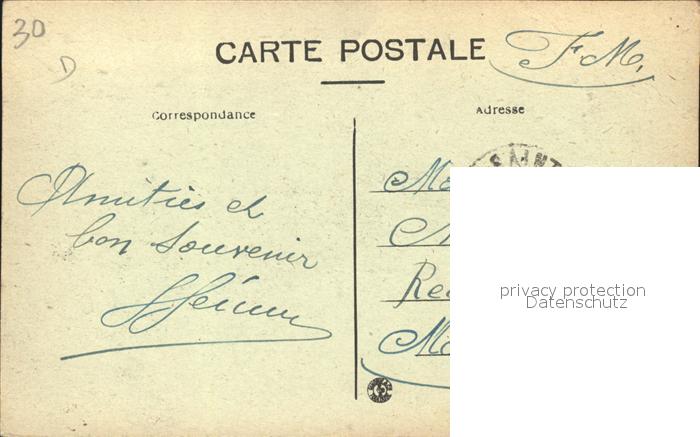 30
D
CARTE POSTALE
F.M.
Correspondance
Adresse
SAINT
Amitiés et
bon souvenir
privacy protection
Datenschutz